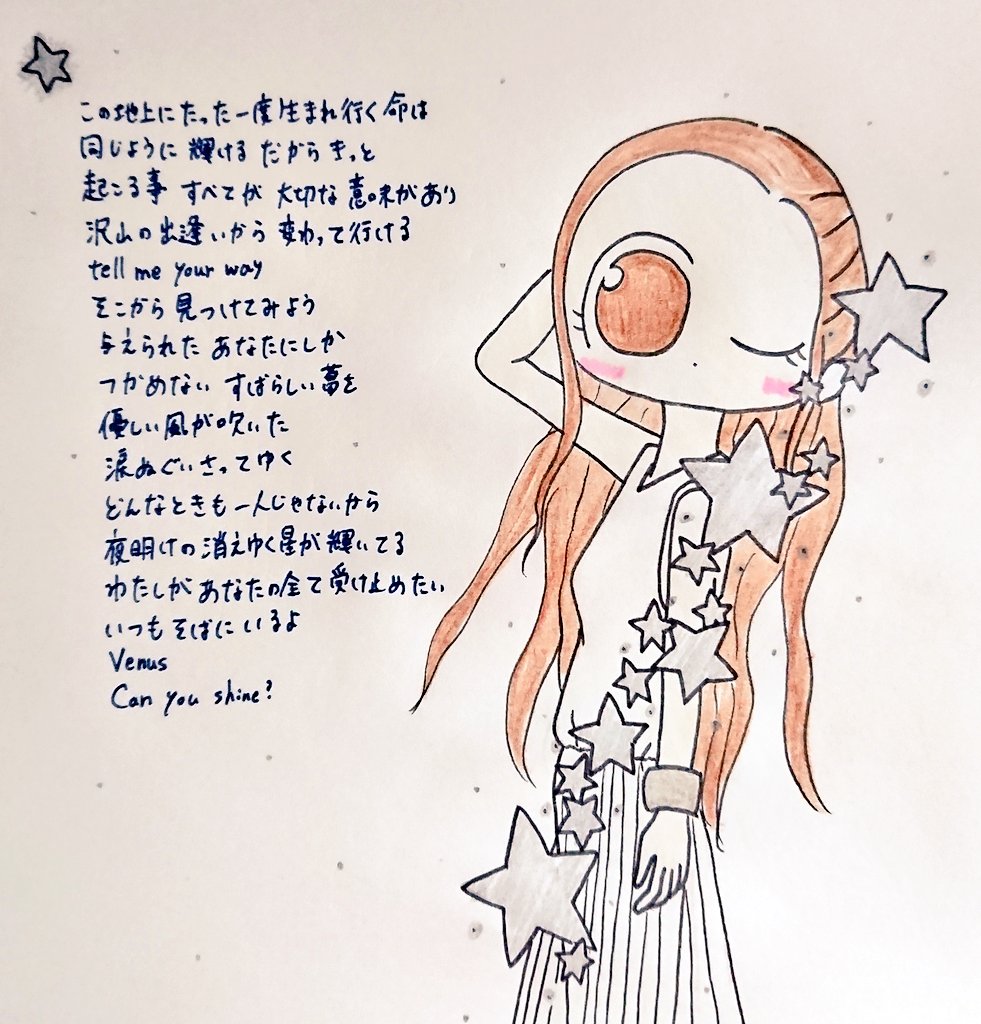 この地上にたった一度生まれ行く命は
同じように輝ける だからきっと
起こる事 すべてが 大切な意味があり
沢山の出逢いから 変わって行ける
tell me your way
そこから 見つけてみよう
与えられた あなたにしか
つかめない すばらしい夢を
優しい風が吹いた
涙ぬぐいさってゆく
どんなときも 一人じゃないから
夜明けの消えゆく星が輝いてる
わたしが あなたの全て受け止めたい
いつもそばにいるよ
Venus
Can you shine?